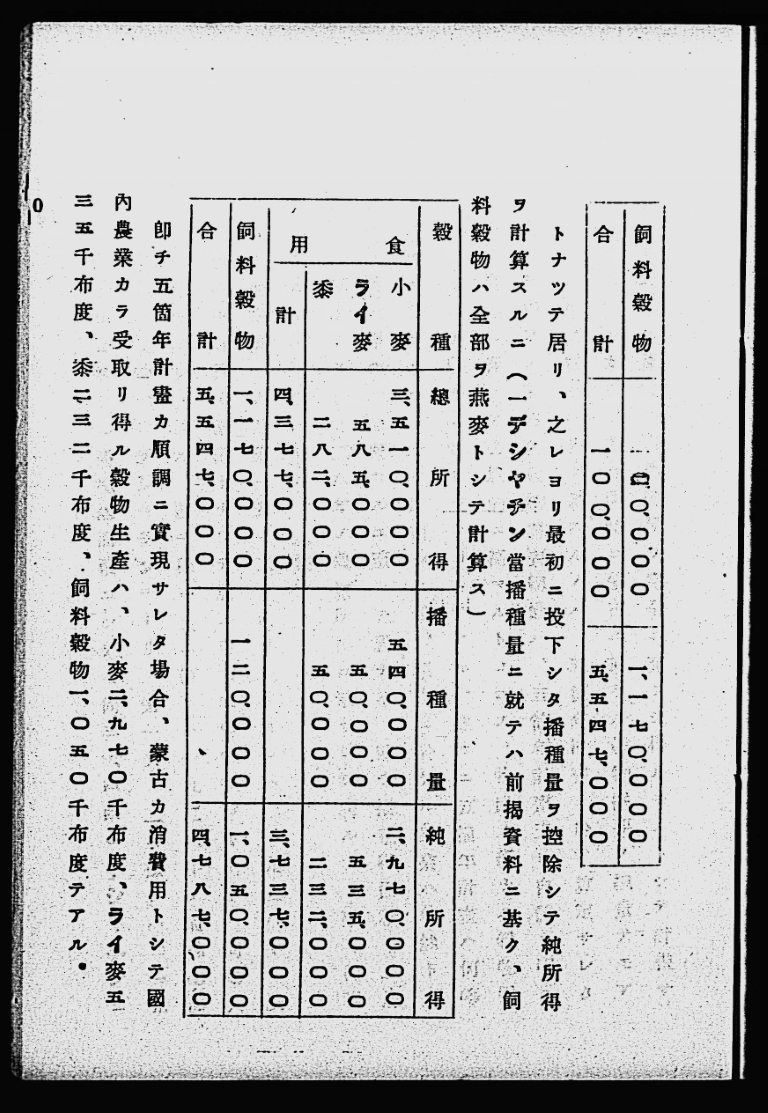 飼料穀物 〇、〇〇〇 一、一七〇、〇〇〇
合計 一〇〇、〇〇〇 五、五四七、〇〇〇
トナツテ居リ、之レヨリ最初ニ投下シタ播種量ヲ控除シテ純所得
ヲ計算スルニ（一デシヤチン當播種量ニ就テハ前揭資料ニ基ク、飼
料穀物ハ全部ヲ燕麥トシテ計算ス）
穀種 總所得 播種量 純所得
食用
小麥 三、五一〇、〇〇〇 五四〇、〇〇〇 二、九七〇、〇〇〇
ライ麥 五八五、〇〇〇 五〇、〇〇〇 五三五、〇〇〇
黍 二八二、〇〇〇 五〇、〇〇〇 二三二、〇〇〇
計 四、三七七、〇〇〇 三、七三七、〇〇〇
飼料穀物 一、一七〇、〇〇〇 一二〇、〇〇〇 一、〇五〇、〇〇〇
合計 五、五四七、〇〇〇 四、七八七、〇〇〇
卽チ五箇年計畫カ順調ニ實現サレタ場合、蒙古カ消費用トシテ國
內農業カラ受取リ得ル穀物生產ハ、小麥二、九七〇千布度、ライ麥五
三五千布度、黍二三二千布度、飼料穀物一、〇五〇千布度テアル。
0